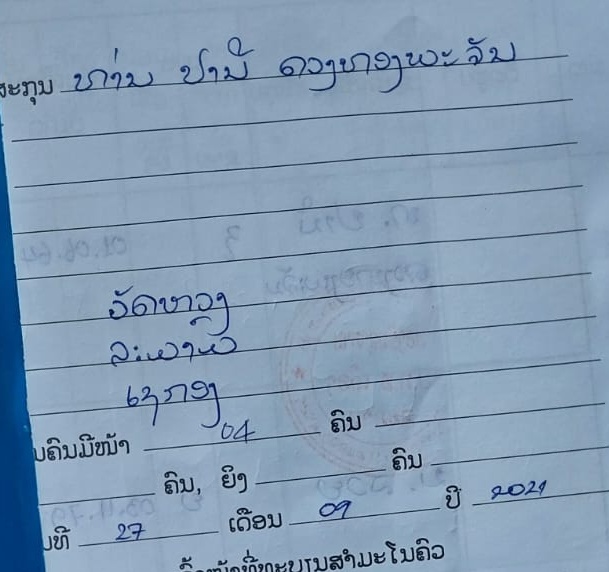 ສະກຸນ ທ່ານ ປານີ ດວງທອງພະຈັນ
ວັດຫລວງ
ລະມາມ
ເຊກອງ
ບຄົນມີໜ້າ 04 ຄົນ
ຄົນ, ຍິງ ຄົນ
ນທີ 27 ເດືອນ 09 ປີ 2021
ເຈົ້າໜ້າທີ່ທະບຽນສຳມະໂນຄົວ